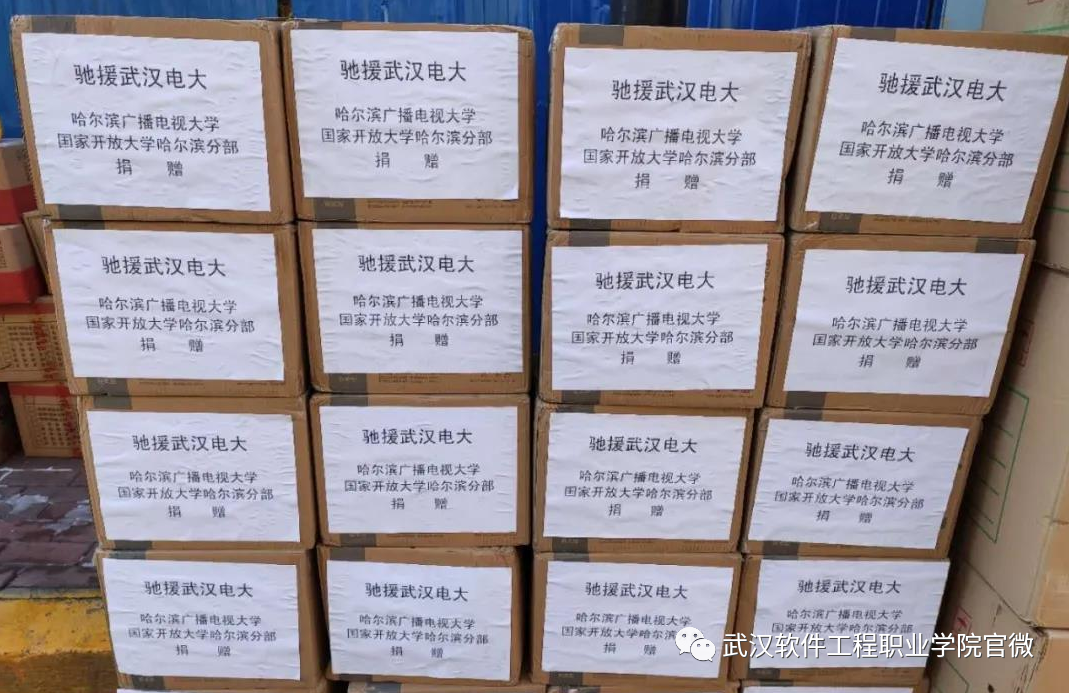 驰援武汉电大
哈尔滨广播电视大学
国家开放大学哈尔滨分部
捐 赠
驰援武汉电大
哈尔滨广播电视大学
国家开放大学哈尔滨分部
捐 赠
驰援武汉电大
哈尔滨广播电视大学
国家开放大学哈尔滨分部
捐 赠
驰援武汉电大
哈尔滨广播电视大学
国家开放大学哈尔滨分部
捐 赠
驰援武汉电大
哈尔滨广播电视大学
国家开放大学哈尔滨分部
捐 赠
驰援武汉电大
哈尔滨广播电视大学
国家开放大学哈尔滨分部
捐 赠
驰援武汉电大
哈尔滨广播电视大学
国家开放大学哈尔滨分部
捐 赠
驰援武汉电大
哈尔滨广播电视大学
国家开放大学哈尔滨分部
捐 赠
驰援武汉电大
哈尔滨广播电视大学
国家开放大学哈尔滨分部
捐 赠
驰援武汉电大
哈尔滨广播电视大学
国家开放大学哈尔滨分部
捐 赠
驰援武汉电大
哈尔滨广播电视大学
国家开放大学哈尔滨分部
捐 赠
驰援武汉电大
哈尔滨广播电视大学
国家开放大学哈尔滨分部
捐 赠
驰援武汉电大
哈尔滨广播电视大学
国家开放大学哈尔滨分部
捐 赠
驰援武汉电大
哈尔滨广播电视大学
国家开放大学哈尔滨分部
捐 赠
驰援武汉电大
哈尔滨广播电视大学
国家开放大学哈尔滨
捐 赠
驰援武汉电大
哈尔滨广播电视大学
国家开放大学哈尔滨分部
武汉软件工程职业学院官微